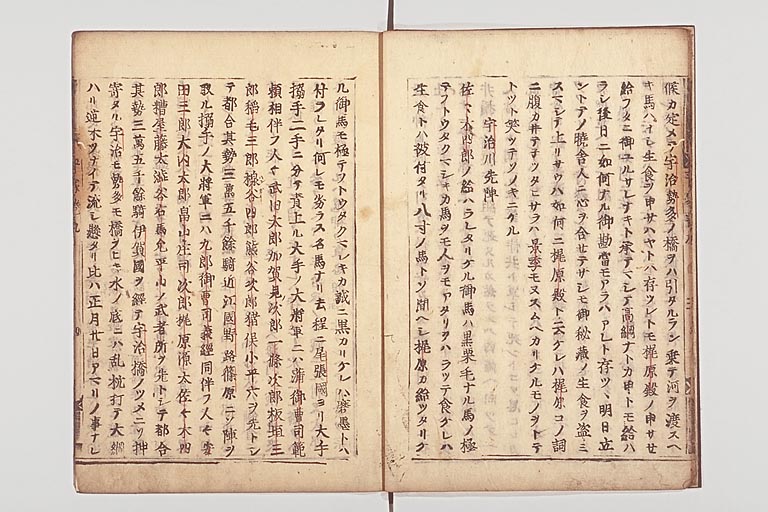 候カ定メテ宇治勢多ノ橋ヲハ引タルラン乗テ河ヲ渡スヘ
キ馬ハナシ生食ヲ申サハヤトハ存ツレトモ梶原殿ノ申サセ
給フタニ御ユルサレナキト承テマシテ高綱ナトカ申トモ給ハ
ラシ後日ニ如何ナル御勘當モアラハアレト存ツヽ明日立
ントテノ暁舎人ニ心ヲ合セテサシモ御秘蔵ノ生食ヲ盗ミ
スマシテ上リサウハ如何ニ梶原殿ト云ケレハ梶原コノ詞
ニ腹カ井テネツタヒサラハ景季モヌスムヘカリケルモノヲトテ
トツト笑テソノキニケル
宇治川先陣
佐々木四郎ノ給ハラレタリケル御馬ハ黒栗毛ナル馬ノ極
テフトウタクマシキカ馬ヲモ人ヲモアタリヲハラツテ食ケレハ
生食トハ被付タリ八寸ノ馬トソ聞ヘシ梶原カ給ツタリケ
ル御馬モ極テフトウタクマシキカ誠ニ黒カリケレハ磨墨トハ
付ラレタリ何レモ劣ラヌ名馬ナリ去程ニ尾張國ヨリ大手
搦手二手ニ分テ責上ル大手ノ大将軍ニハ蒲御曹司範
頼相伴フ人々武田太郎加賀見次郎一條次郎板垣三
郎稲毛三郎榛谷四郎熊谷次郎猪俣小平六ヲ先トシ
テ都合其勢三萬五千餘騎近江國野路篠原ニソ陣ヲ
取ル搦手ノ大将軍ニハ九郎御曹司義經同伴フ人々安
田三郎大内太郎畠山庄司次郎梶原源太佐々木四
郎糟屋藤太渋谷右馬允平山ノ武者所ヲ先トシテ都合
其勢二萬五千餘騎伊賀國ヲ經テ宇治橋ノツメニソ押
寄タル宇治モ勢多モ橋ヲヒキ水ノ底ニハ乱杭打テ大綱
ハリ逆木ツナイテ流シ懸タリ比ハ正月廿日アマリノ事ナレ